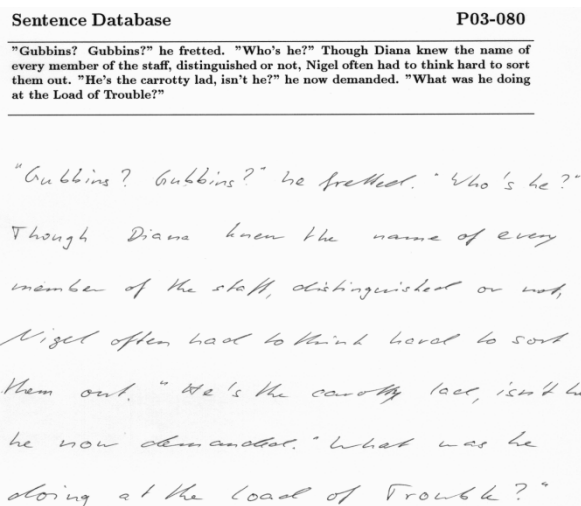 Sentence Database P03-080
"Gubbins? Gubbins?" he fretted. "Who's he?" Though Diana knew the name of
every member of the staff, distinguished or not, Nigel often had to think hard to sort
them out. "He's the carrotty lad, isn't he?" he now demanded. "What was he doing
at the Load of Trouble?"
"Gubbins? Gubbins?" he fretted. "Who's he?"
Though Diana knew the name of every
member of the staff, distinguished or not,
Nigel often had to think hard to sort
them out. "He's the carotty lad, isn't he
he now demanded. "What was he
doing at the Load of Trouble?"